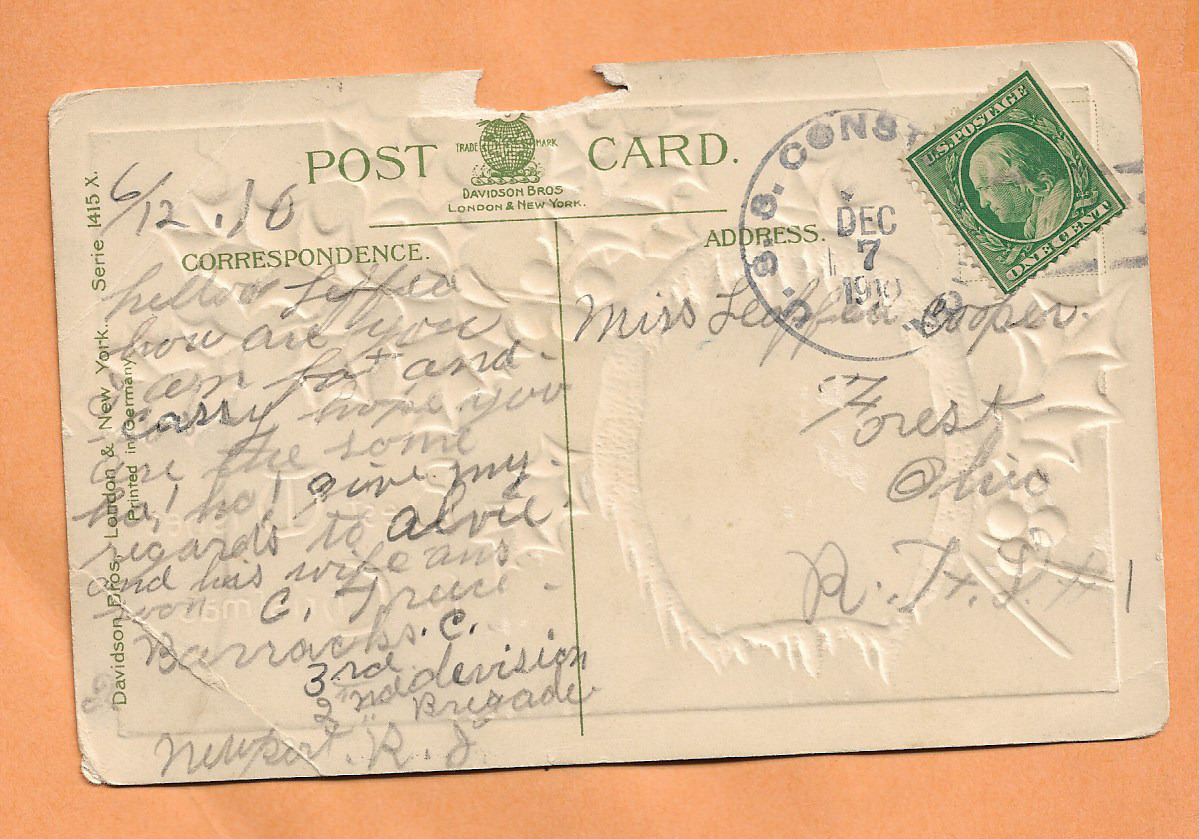 POST CARD.
TRADE MARK
DAVIDSON BROS
LONDON & NEW YORK.
Davidson Bros. London & New York. Serie 1415 X.
Printed in Germany
6/12.10
CORRESPONDENCE.
hellow Leffea
how are you
I am fat and
sassy hope you
are the same
ha! ho! give my
regards to alvie
and his wife ans
soon C. Treece
Barracks. C.
3rd devision
2nd Brigade
Newport. R. I
ADDRESS.
U.S.S. CONST
DEC
7
1910
U.S. POSTAGE
ONE CENT
Miss Cooper.
Forest
Ohio
R. F. D # 1